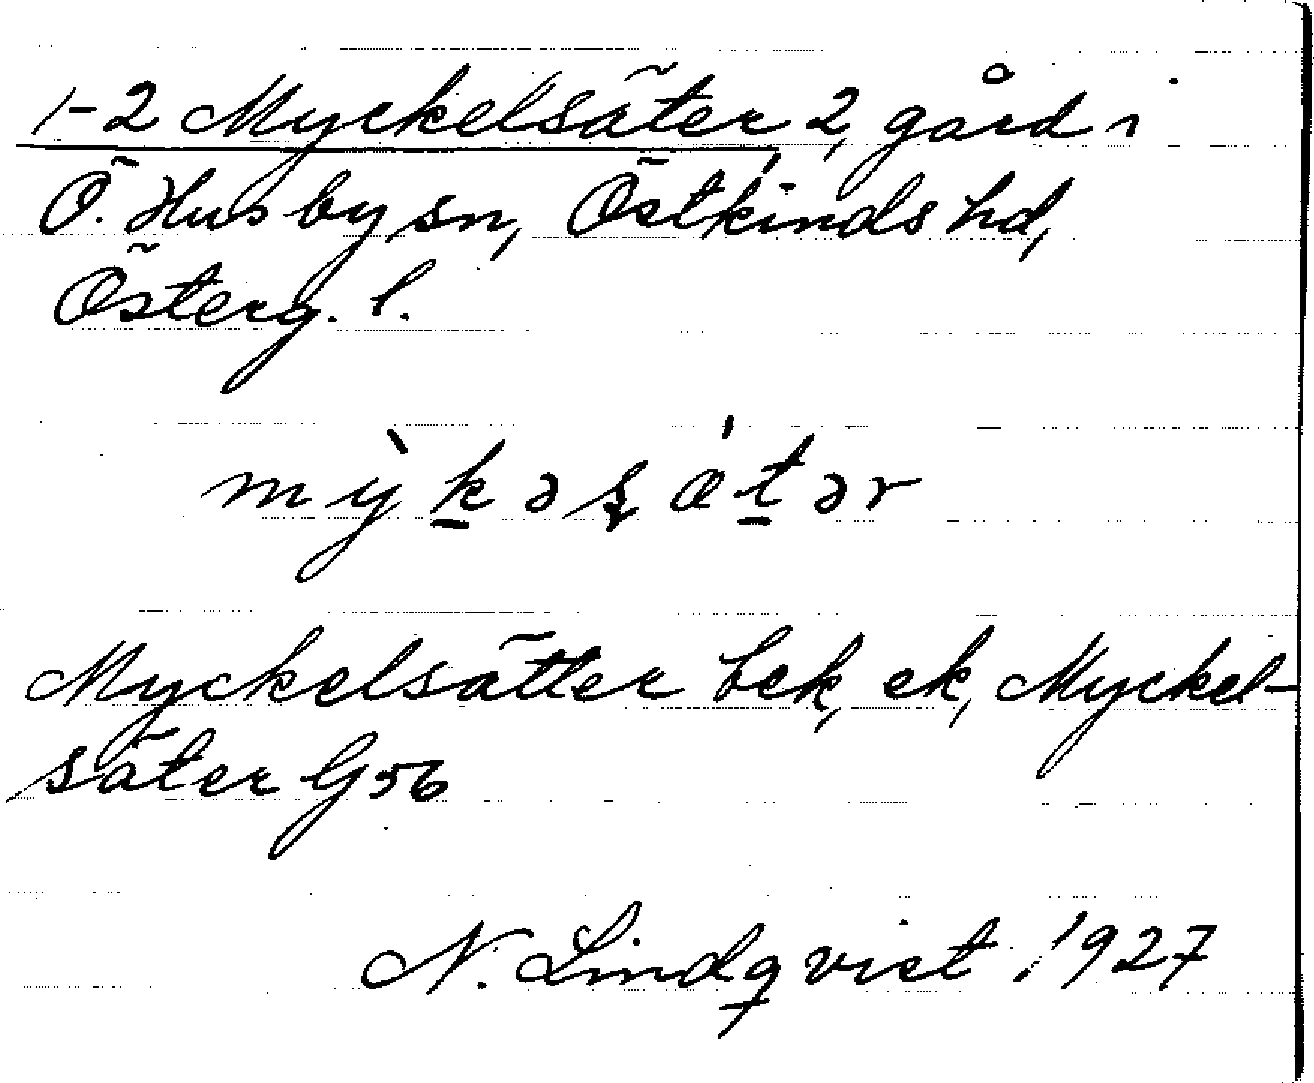 1-2 Myckelsäter 2, gård i
Ö. Husby sn, Östkinds hd,
Österg. l.
mỳk̲əsǽt̲ər
Myckelsätter bek, ek, Myckel-
säter G56
N. Lindqvist 1927